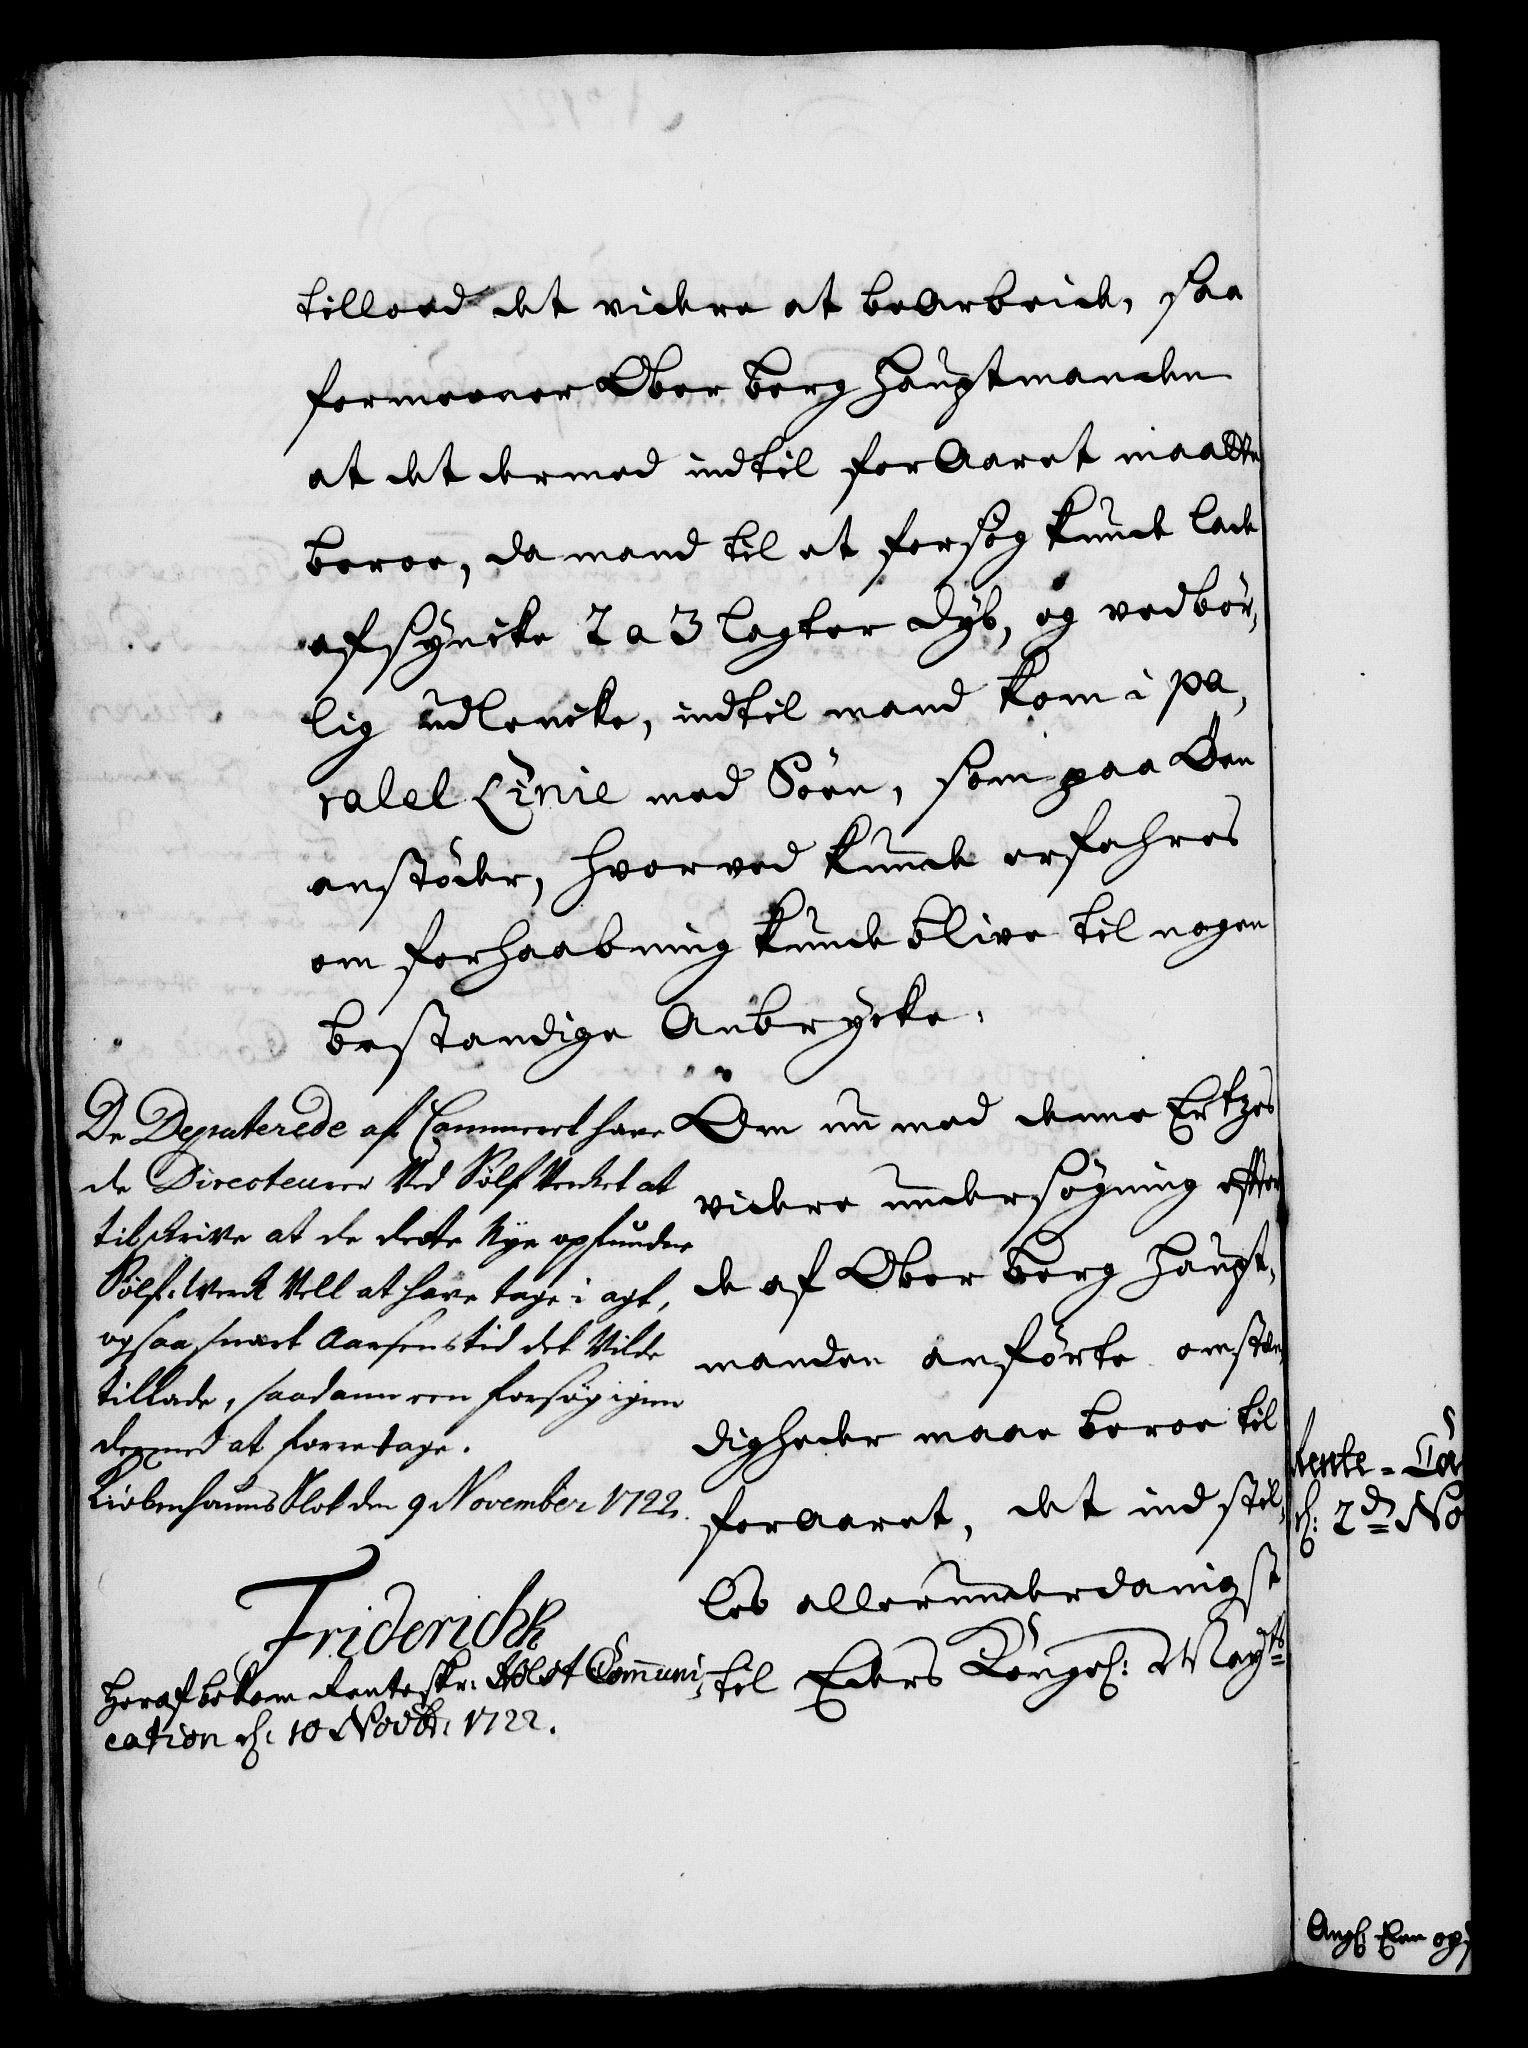 tilloed det videre at bearbeide, saa
formeener Ober Berg Hauptmanden
at det dermed indtil forAaret maatte
beroe, da mand til et forsøg kunde lade
afsyncke 2 a 3 Lagter dyb, og vedbør,
lig udlencke, indtil mand kom i pa,
ralel Linie med Søen, som paa Den
anstøder, hvorved kunde erfahres
om forhaabning kunde blive til nogen
bestandige Anbrycke.
Om nu med denne Ertzes
videre undersøgning effter
de af Ober Berg Haupt,
manden anførte omstæn,
digheder maae beroe til
forAaret, det indstil,
les allerunderdanigst
til Eders Kongel: May:ts
De Deputerede af Commercet have
de Directeurer Ved Sølf Verket at
tilskrive at de dette Nye opfundne
Sølf-Werk Vell at have tage i agt,
og saa snart Aarsens tid det Vilde
tillade, saadann een forsøg igien
dermed at foretage.
Kiøbenhauns Slot den 9 November 1722.
Friderich R
Heraf bekom Renteskr: Holst Communi,
cation d: 10 Novbr: 1722.
Rente-Ca
d: 2d No